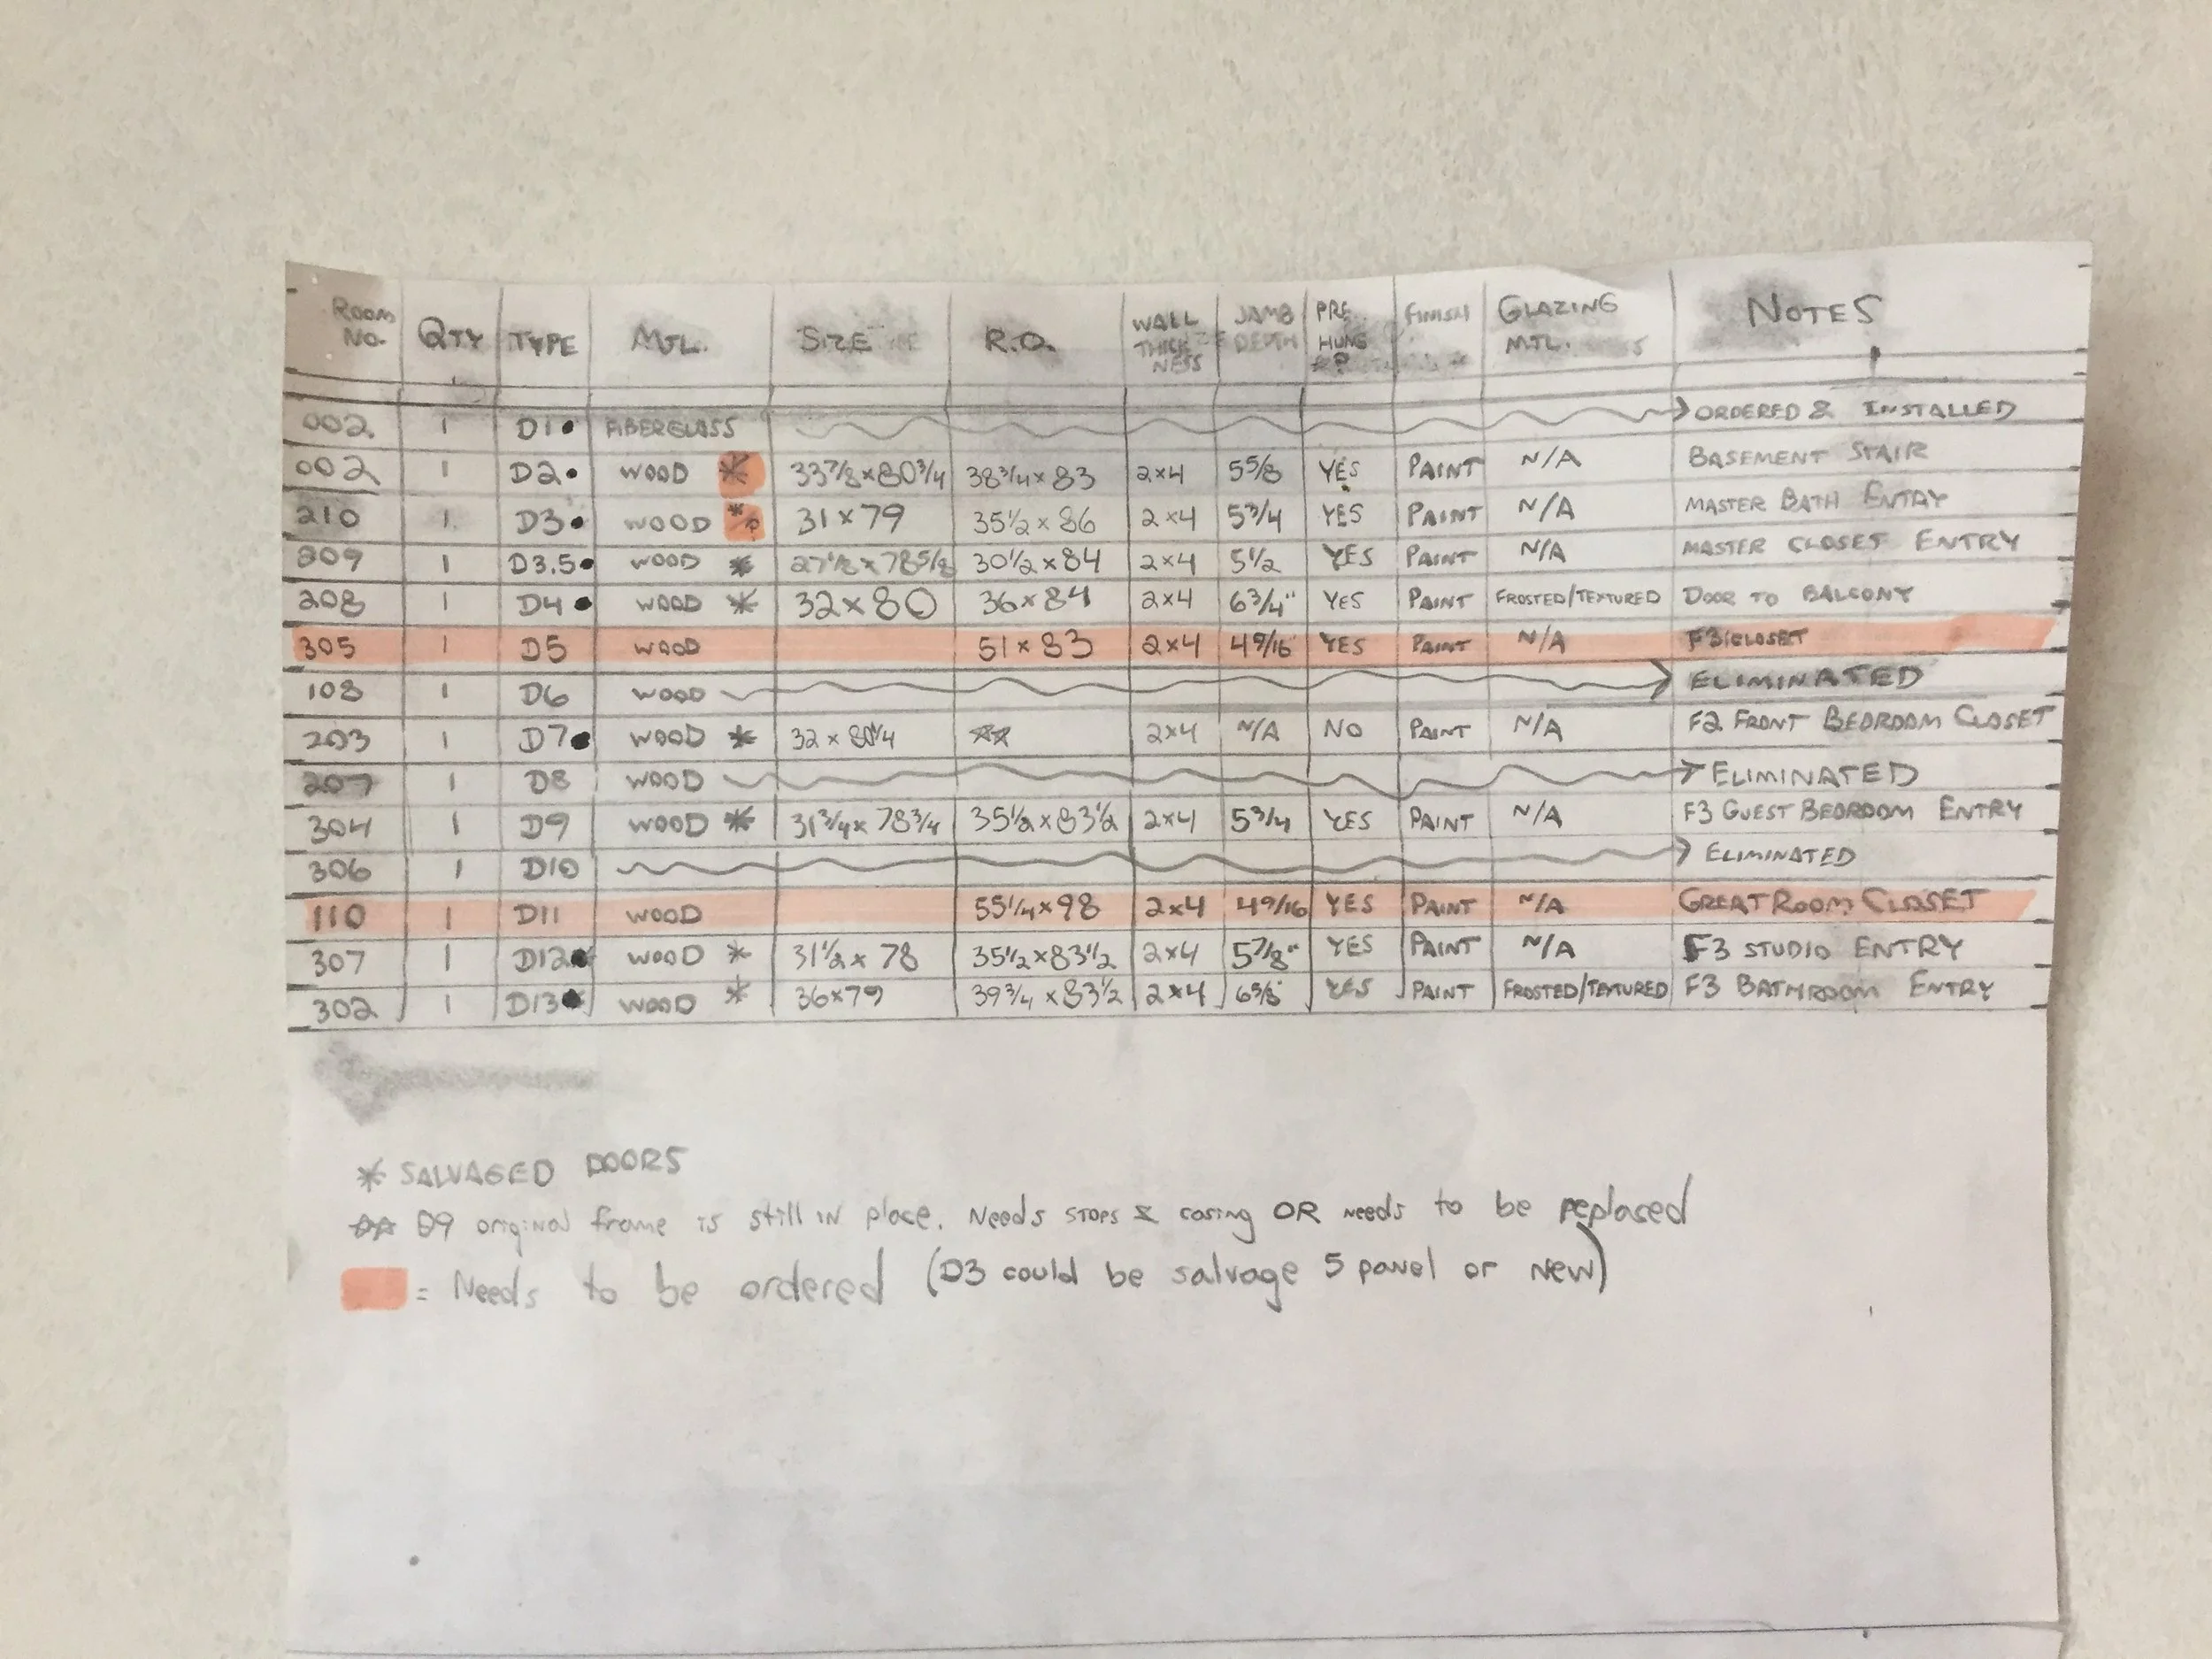 ROOM NO. QTY TYPE MTL. SIZE R.O. WALL THICKNESS JAMB DEPTH PRE HUNG? FINISH GLAZING MTL. NOTES
002 1 D1• FIBERGLASS → ORDERED & INSTALLED
002 1 D2• WOOD * 33 7/8 x 80 3/4 38 3/4 x 83 2x4 5 5/8 YES PAINT N/A BASEMENT STAIR
210 1 D3• WOOD */? 31 x 79 35 1/2 x 86 2x4 5 3/4 YES PAINT N/A MASTER BATH ENTRY
209 1 D3.5• WOOD * 78 5/8 30 1/2 x 84 2x4 5 1/2 YES PAINT N/A MASTER CLOSET ENTRY
208 1 D4• WOOD * 32 x 80 36 x 84 2x4 6 3/4" YES PAINT FROSTED/TEXTURED DOOR TO BALCONY
305 1 D5 WOOD 51 x 83 2x4 4 9/16 YES PAINT N/A F3 CLOSET
108 1 D6 WOOD → ELIMINATED
203 1 D7• WOOD * 32 x 80 1/4 ** 2x4 N/A NO PAINT N/A F2 FRONT BEDROOM CLOSET
207 1 D8 WOOD → ELIMINATED
304 1 D9 WOOD * 31 3/4 x 78 3/4 35 1/2 x 83 1/2 2x4 5 3/4 YES PAINT N/A F3 GUEST BEDROOM ENTRY
306 1 D10 → ELIMINATED
110 1 D11 WOOD 55 1/4 x 98 2x4 4 9/16 YES PAINT N/A GREAT ROOM CLOSET
307 1 D12• WOOD * 31 1/2 x 78 35 1/2 x 83 1/2 2x4 5 7/8" YES PAINT N/A F3 STUDIO ENTRY
302 1 D13• WOOD * 36 x 79 39 3/4 x 83 1/2 2x4 6 5/8 YES PAINT FROSTED/TEXTURED F3 BATHROOM ENTRY
* SALVAGED DOORS
** D9 original frame is still in place. Needs stops & casing OR needs to be replaced
= Needs to be ordered (D3 could be salvage 5 panel or new)